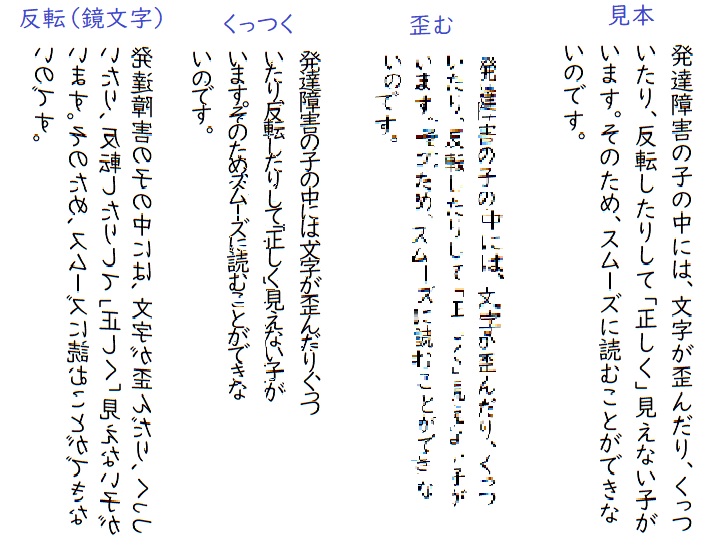 見本
発達障害の子の中には、文字が歪んだり、くっつ
いたり、反転したりして「正しく」見えない子が
います。そのため、スムーズに読むことができな
いのです。
歪む
発達障害の子の中には、文字が歪んだり、くっつ
いたり、反転したりして「正しく」見えない子が
います。そのため、スムーズに読むことができな
いのです。
くっつく
発達障害の子の中には文字が歪んだり、くっつ
いたり、反転したりして「正しく」見えない子が
います。そのためスムーズに読むことができな
いのです。
反転(鏡文字)
発達障害の子の中には、文字が歪んだり、くっつ
いたり、反転したりして「正しく」見えない子が
います。そのため、スムーズに読むことができな
いのです。